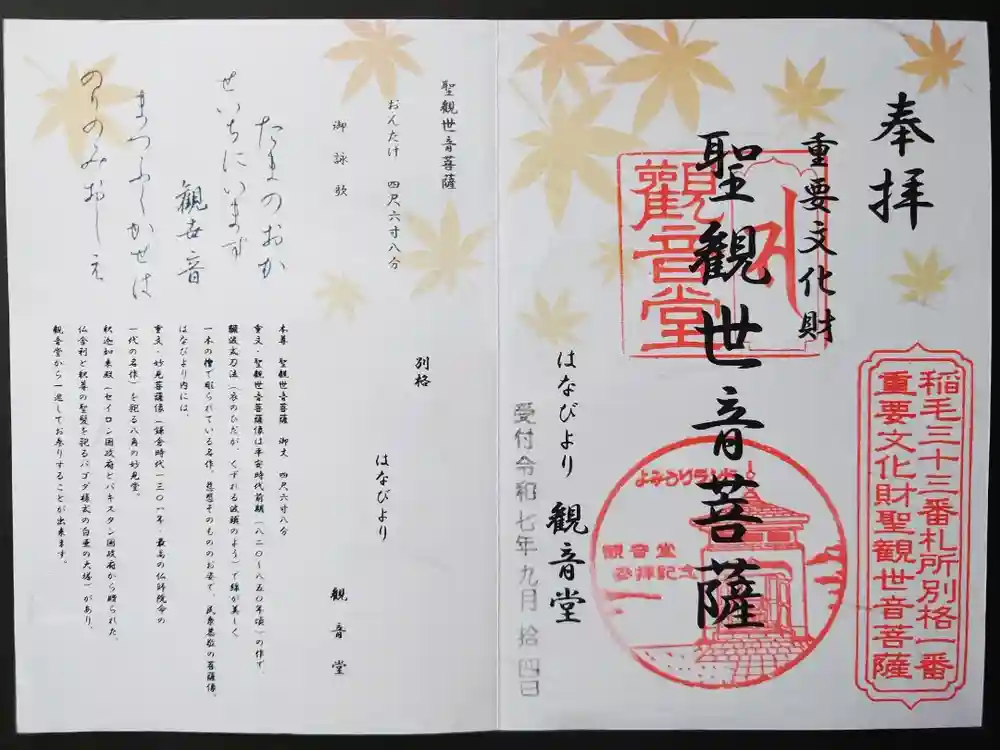 奉拝
重要文化財
聖観世音菩薩
観音堂
はなびより 観音堂
受付令和七年九月拾四日
稲毛三十三番札所別格一番
重要文化財聖観世音菩薩
よみうりランド
観音堂
参拝記念
聖観世音菩薩
おんたけ 四尺六寸八分
御詠歌
たまのおか
せいちにいます
観世音
まつふくかせは
のりのみおしえ
別格
はなびより
観音堂
本尊 聖観世音菩薩 御丈 四尺六寸八分
重文・聖観世音菩薩像は平安時代前期(八二〇~八五〇年頃)の作で、
飜波式刀法(衣のひだが、くずれる波頭のよう)で線が美しく
一木の檜で彫られている名作。慈悲そのもののお姿で、民衆慕敬の菩薩像。
はなびより内には、
重文・妙見菩薩像(鎌倉時代一三〇一年・最高の仏師院命の
一代の名作)を祀る八角の妙見堂。
釈迦如来殿(セイロン国政府とパキスタン国政府から贈られた、
仏舎利と釈尊の聖髪を祀るパゴダ様式の白亜の大塔)があり、
観音堂から一巡してお参りすることが出来ます。